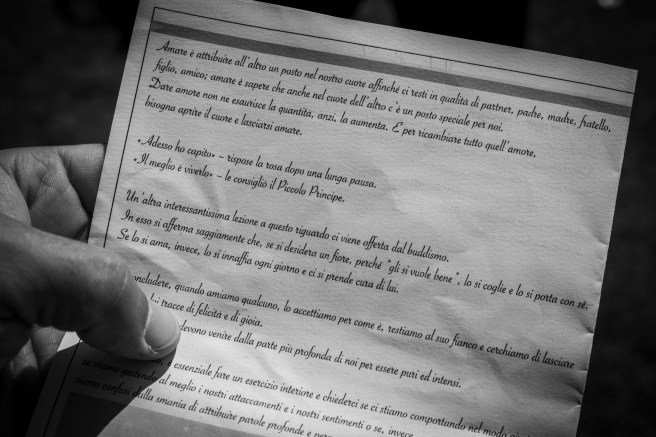 Amare è attribuire all'altro un posto nel nostro cuore affinché ci resti in qualità di partner, padre, madre, fratello,
figlio, amico; amare è sapere che anche nel cuore dell'altro c'è un posto speciale per noi.
Dare amore non ne esaurisce la quantità, anzi, la aumenta. E per ricambiare tutto quell'amore,
bisogna aprire il cuore e lasciarsi amare.
«Adesso ho capito» – rispose la rosa dopo una lunga pausa.
«Il meglio è viverlo» – le consigliò il Piccolo Principe.
Un'altra interessantissima lezione a questo riguardo ci viene offerta dal buddismo.
In esso si afferma saggiamente che, se si desidera un fiore, perché "gli si vuole bene", lo si coglie e lo si porta con sé.
Se lo si ama, invece, lo si innaffia ogni giorno e ci si prende cura di lui.
concludere, quando amiamo qualcuno, lo accettiamo per come è, restiamo al suo fianco e cerchiamo di lasciare
lui tracce di felicità e di gioia.
devono venire dalla parte più profonda di noi per essere puri ed intensi.
essenziale fare un esercizio interiore e chiederci se ci stiamo comportando nel modo
se stiamo gestendo al meglio i nostri attaccamenti e i nostri sentimenti o se, invece
siamo confusi dalla smania di attribuire parole profonde e